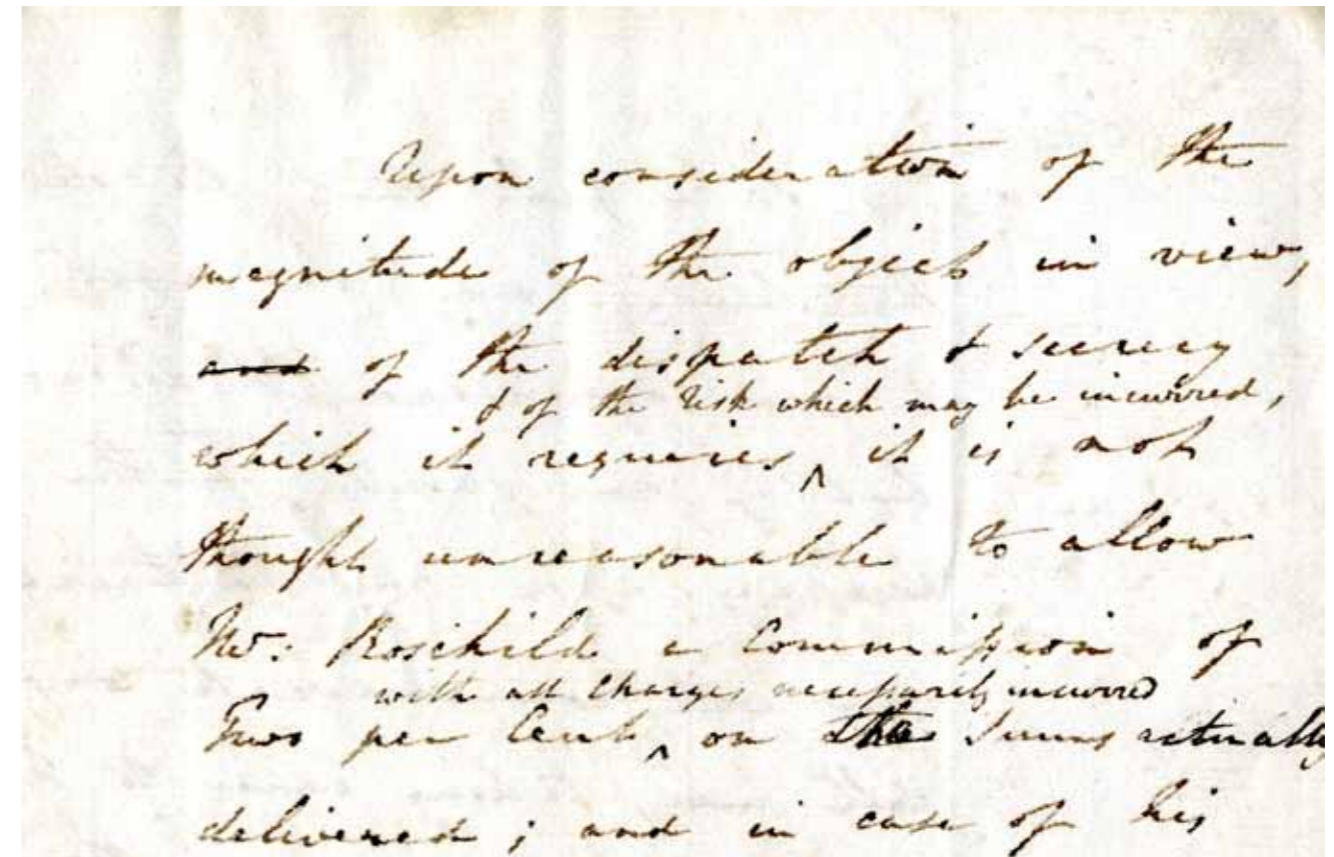 Upon consideration of the
magnitude of the object in view,
and of the dispatch & secrecy
& of the risk which may be incurred,
which it requires ^ it is not
thought unreasonable to allow
Mr: Roschild a Commission of
with all charges necessarily incurred
Two per Cent ^ on the Sums actually
delivered; and in case of his